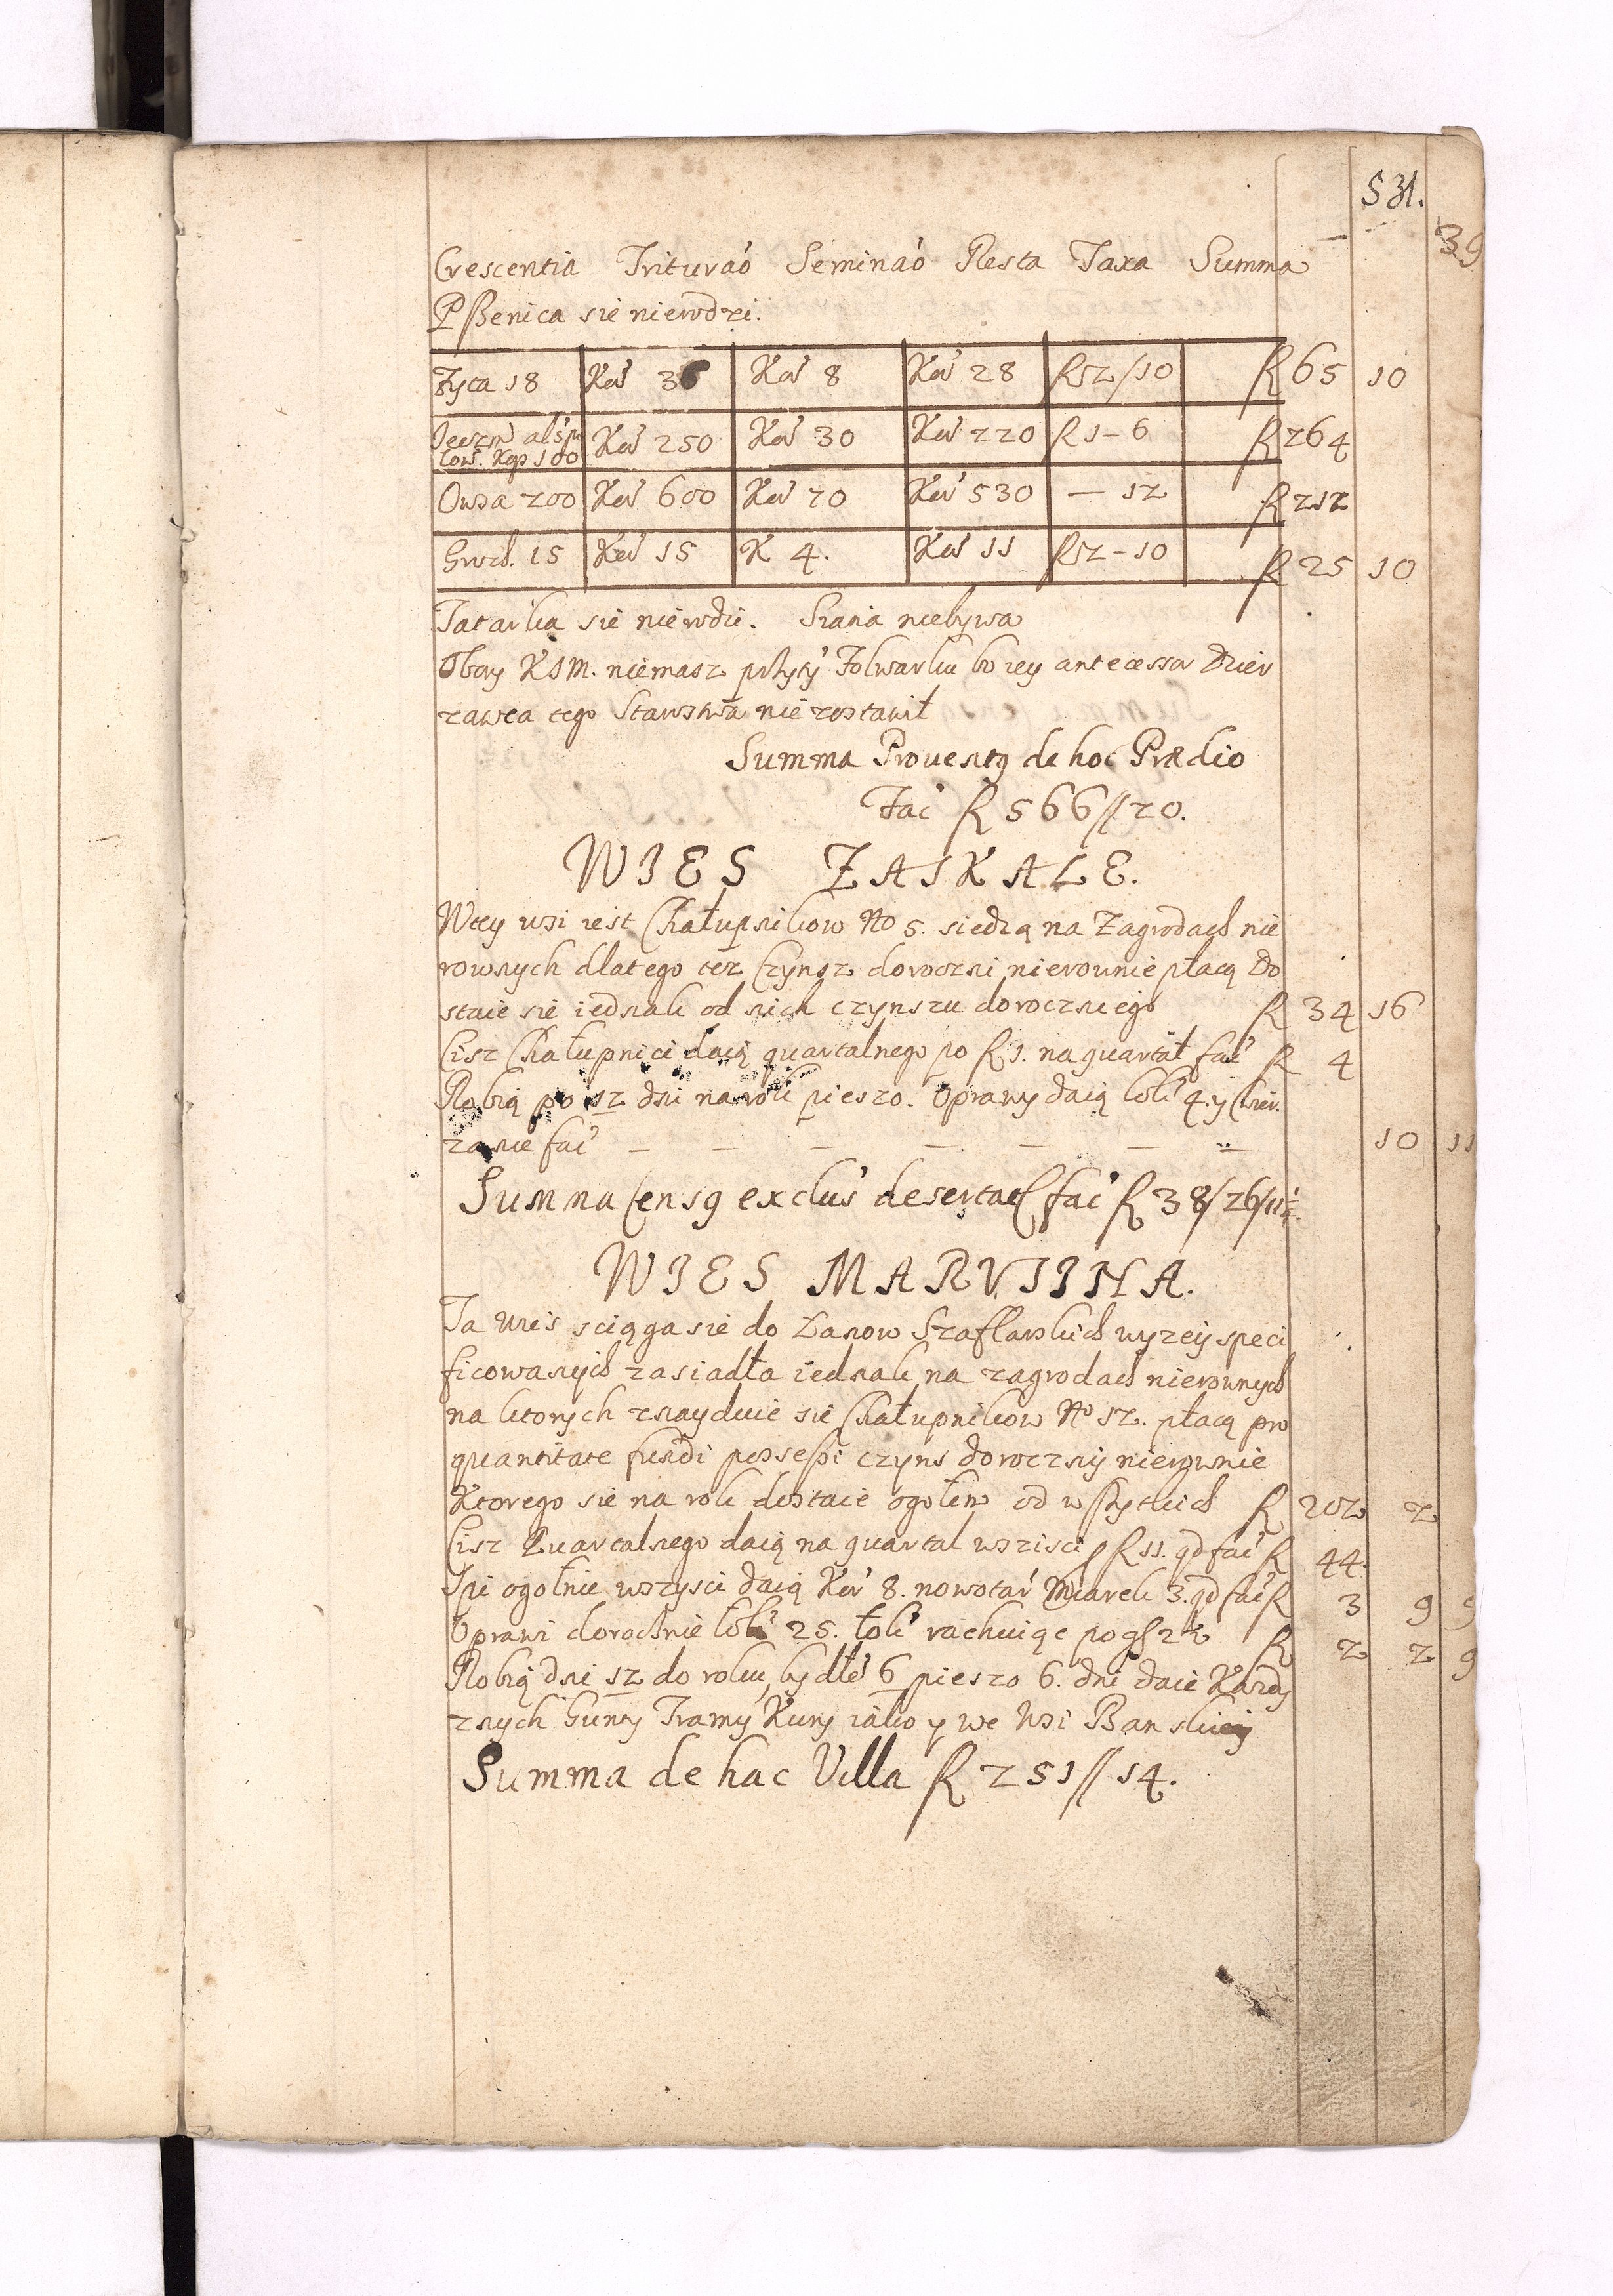 531.
39
Crescentia Trituraó Seminaó Resta Taxa Summa
Pßenica się nierodzi.
Zyta 18 Koŕ 36 Koŕ 8 Koŕ 28 R 2/10 R 65 10
Jęczm̄ Kop 100 Koŕ 250 Koŕ 30 Koŕ 220 R 1–6 R 264
Owsa 200 Koŕ 600 Koŕ 70 Koŕ 530 — 12 R 212
Groch. 15 Koŕ 15 K 4. Koŕ 11 R 2–10 R 25 10
Tatarka się nierodzi. Siana niebywa
Obory KJM. niemasz przytÿ Folwarku bo iey antecessor Dzier
zawca tego Starostwa niezostawił
Summa Prouentq de hoc Prædio
Fać R 566//20.
WIES ZASKALE.
Wtey wsi iest Chałupnikow No 5. siedzą na Zagrodach nie
rownych dlatego tez Czynsz doroczni nierownie płacą Do
staie się iednak od nich czynszu dorocznego R 34 16
Cisz Chałupnici daią quartalnego po R 1. na quartał fać R 4
Robią po 12 dni na rok pieszo. Oprawy daią łok 4. y
za nie fać — — — — — — — 10 11
Summa Censq exclus desertaq fać R 38/26/11½.
WIES MARVSINA.
Ta Wies sciąga sie do Łanow Szaflarskich wyzeÿ speci
ficowanych zasiadła iednak na zagrodach nierownych
na ktorych znayduie się Chałupnikow No 12. płacą pro
quantitate fundi possessi czyns dorocznÿ nierownie
Ktorego się na rok dostaie ogołem od wszytkich R 202 2
Cisz Quartalnego daią na quartal wszisci R 11. qd fać R 44.
Spi ogołnie wszysci daią Koŕ 8. nowotaŕ Miarek 3. qd faćR 3 9 9
Oprawi dorocznie łok 25. łok rachuiąc po gſ 2½ R 2 2 9
Robią dni 12 do roku, bydłe 6 pieszo 6. dni daie Kazdy
znych Gunty Tramy Kury iako y we Wsi Banskieÿ
Summa de hac Villa R 251//14.